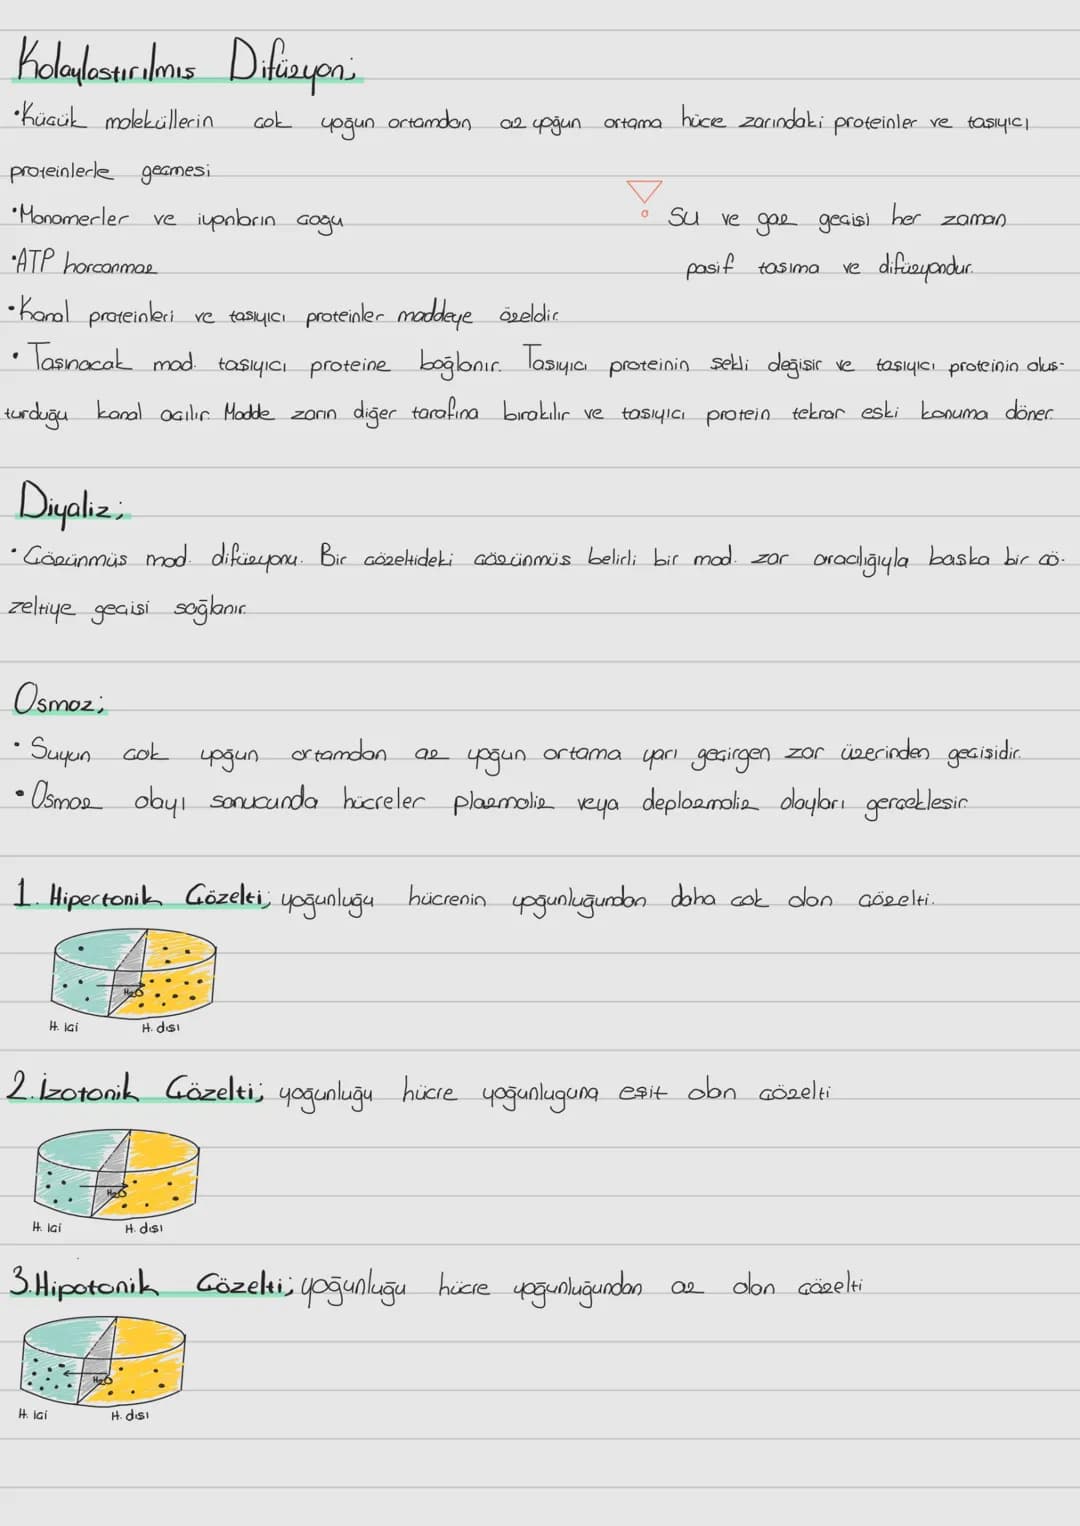 Kolaylastırılmıs Difüzyon;
•Kücük moleküllerin cok yoğun ortamdan az yoğun ortama hücre zarındaki proteinler ve tasıyıcı
proteinlerle gecmesi
•Monomerler ve iyonların cogu
Su ve gaz gecisi her zaman
•ATP harcanmaz
pasif tasıma ve difüzyondur.
•Kanal proteinleri ve tasıyıcı proteinler maddeye özeldir.
•Tasınacak mad. tasıyıcı proteine bağlanır. Tasıyıcı proteinin sekli değisir ve tasıyıcı proteinin olus-
turduğu kanal acılır. Madde zarın diğer tarafına bırakılır ve tasıyıcı protein tekrar eski konuma döner.
Diyaliz;
•Cözünmüs mad. difüzyonu. Bir cözeltideki cözünmüs belirli bir mad. zar aracılığıyla baska bir cö-
zeltiye gecisi sağlanır.
Osmoz;
•Suyun cok yoğun ortamdan az yoğun ortama yarı gecirgen zar üzerinden gecisidir.
•Osmoz olayı sonucunda hücreler plazmoliz veya deplazmoliz olayları gerceklesir.
1. Hipertonik Cözelti; yoğunluğu hücrenin yoğunluğundan daha cok olan cözelti.
H₂O
H. ici H. dısı
2. İzotonik Cözelti; yogunluğu hücre yoğunluguna eşit olan cözelti
H₂O
H. ici H. dısı
3.Hipotonik Cözelti; yoğunluğu hücre yoğunluğundan az olan cözelti
H₂O
H. ici H. dısı